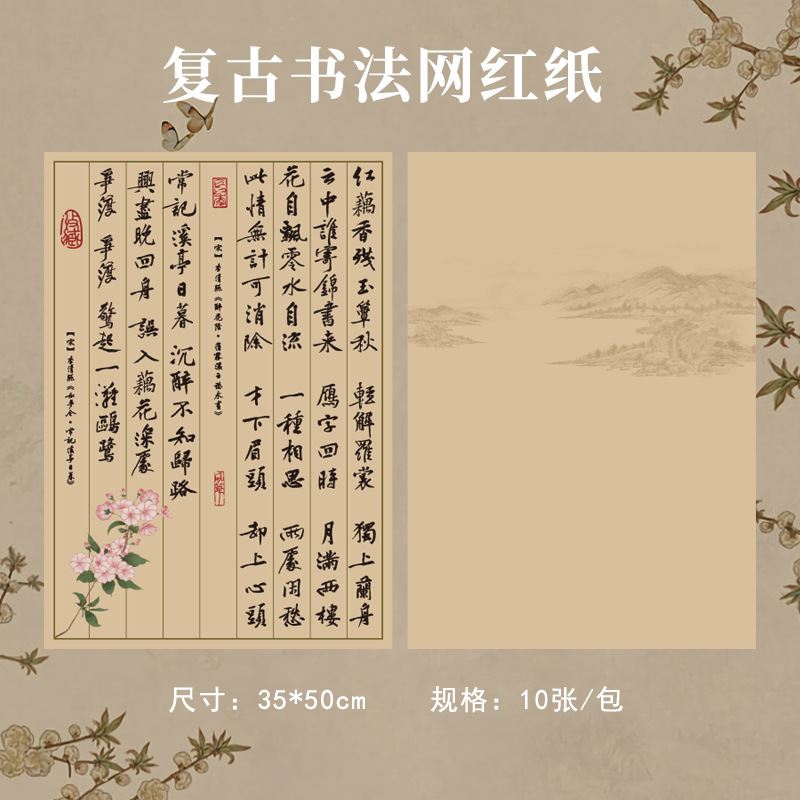 复古书法网红纸
红藕香残玉簟秋 輕解羅裳 獨上蘭舟
云中誰寄錦書来 雁字回時 月滿西樓
花自飄零水自流 一種相思 兩處闲愁
此情無計可消除 才下眉頭 却上心頭
【宋】李清照《醉花陰·薄霧濃云愁永晝》
常記溪亭日暮 沉醉不知歸路
興盡晚回舟 誤入藕花深處
爭渡 爭渡 驚起一灘鷗鷺
【宋】李清照《如夢令·常記溪亭日暮》
尺寸：35*50cm
规格：10张/包